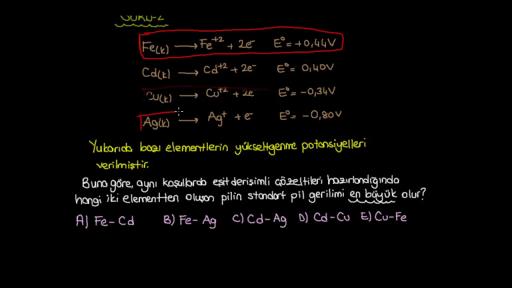 SORU-2
Fe(k) → Fe⁺² + 2e⁻ E° = +0,44V
Cd(k) → Cd⁺² + 2e⁻ E° = 0,40V
Cu(k) → Cu⁺² + 2e⁻ E° = -0,34V
Ag(k) → Ag⁺ + e⁻ E° = -0,80V
Yukarıda bazı elementlerin yükseltgenme potansiyelleri
verilmiştir.
Buna göre, aynı koşullarda eşit derişimli çözeltileri hazırlandığında
hangi iki elementten oluşan pilin standart pil gerilimi en büyük olur?
A) Fe-Cd B) Fe-Ag C) Cd-Ag D) Cd-Cu E) Cu-Fe